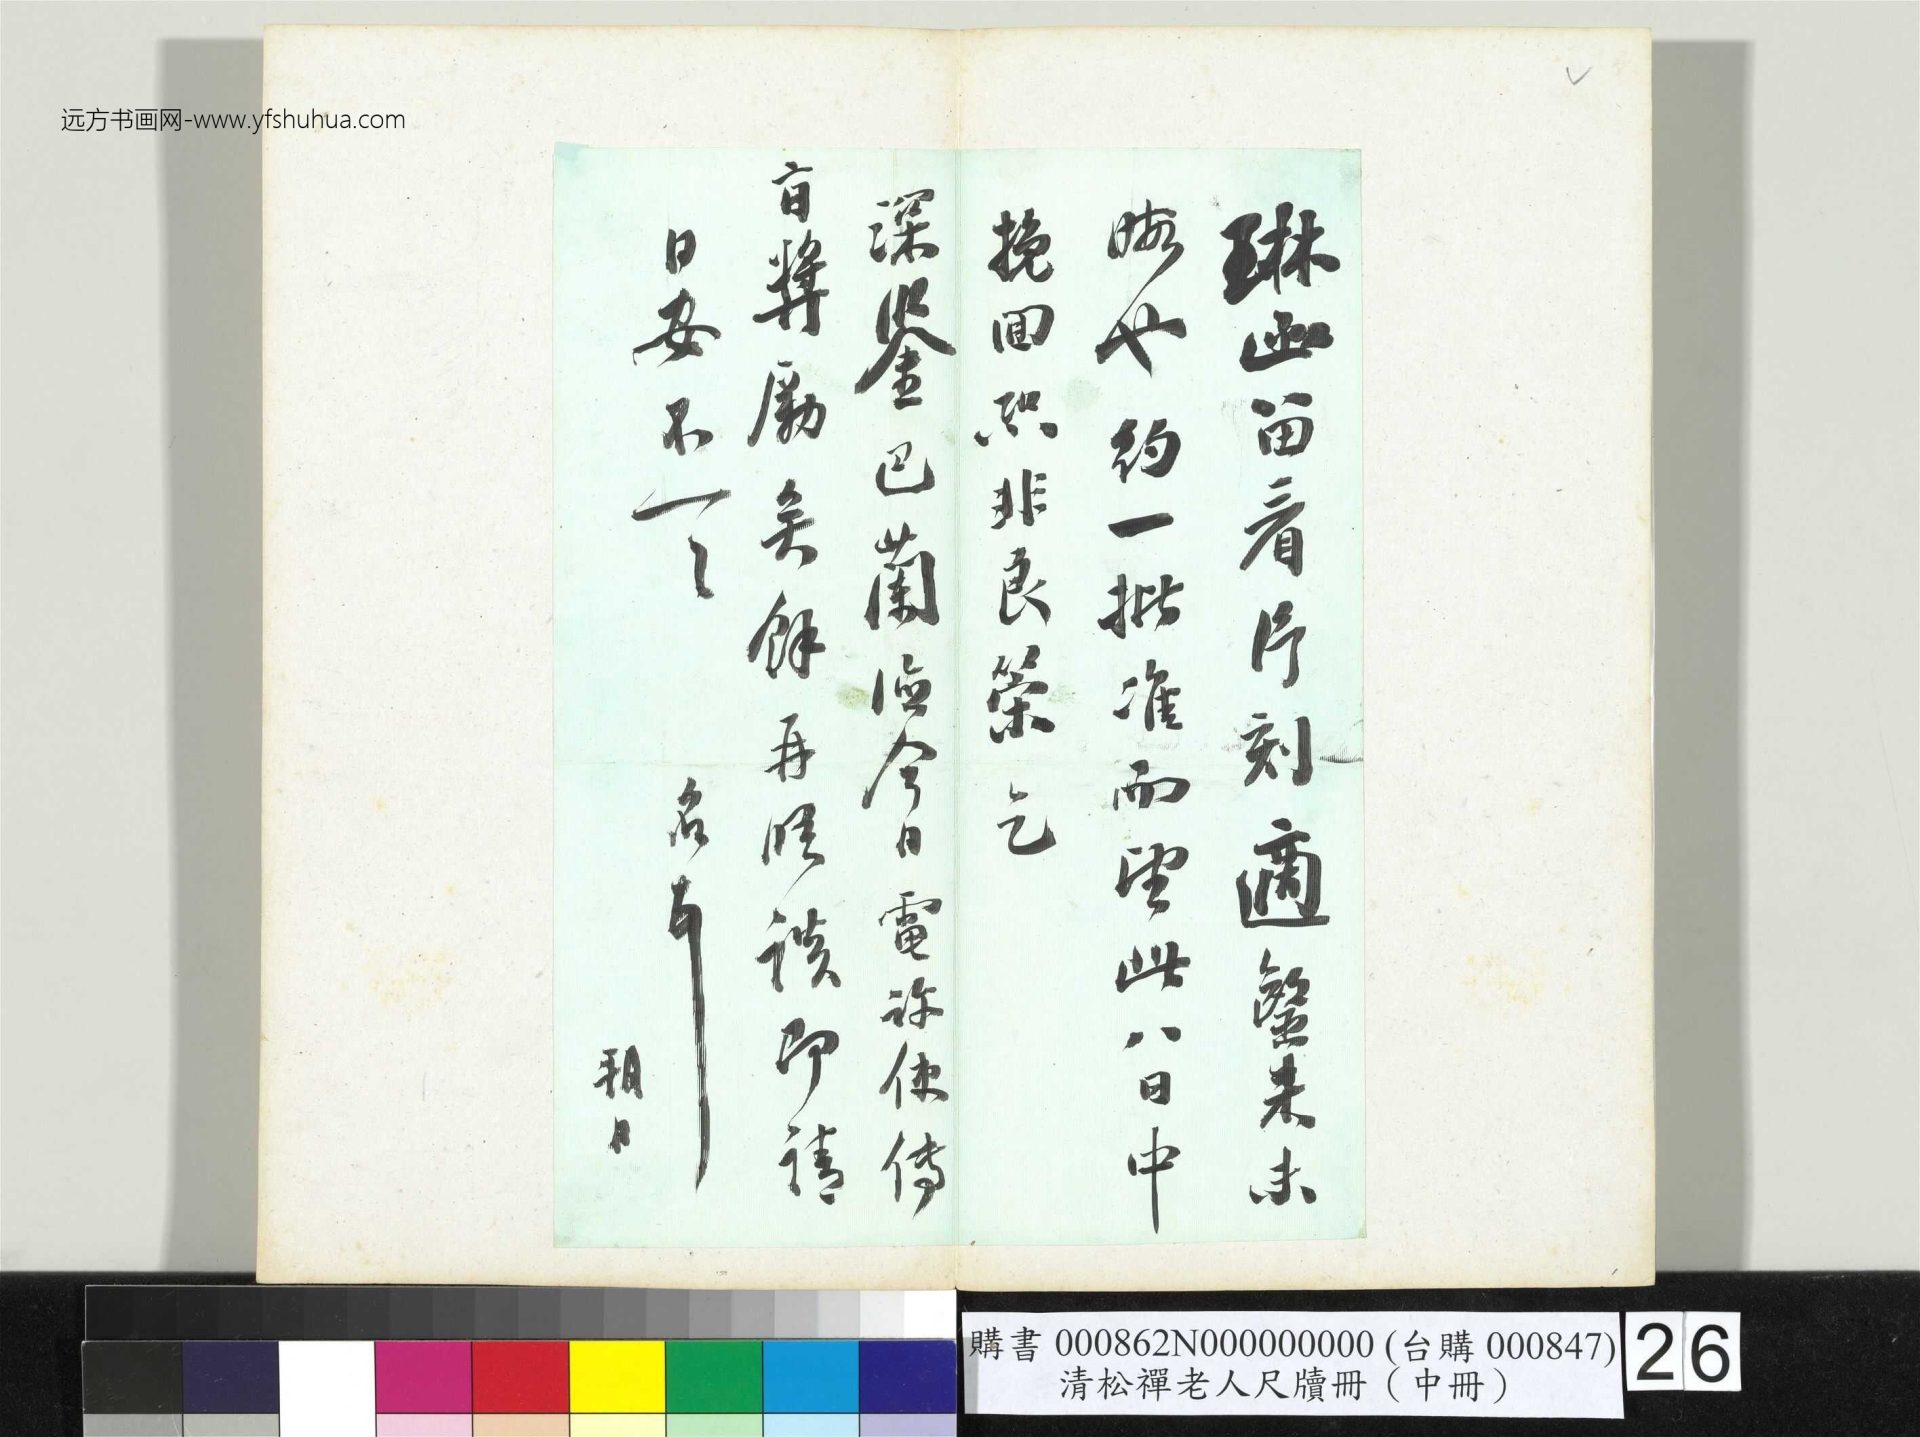 远方书画网-www.yfshuhua.com
琳函留看片刻適醫來未
晤也約一批准而望此八日中
挽回恐非良策乞
深鑒巴蘭德今日電許使傳
旨獎勵矣餘再晤談即請
日安不一一
名心叩
朔日
購書 000862N000000000 (台購 000847)
清松禪老人尺牘冊（中冊）
26